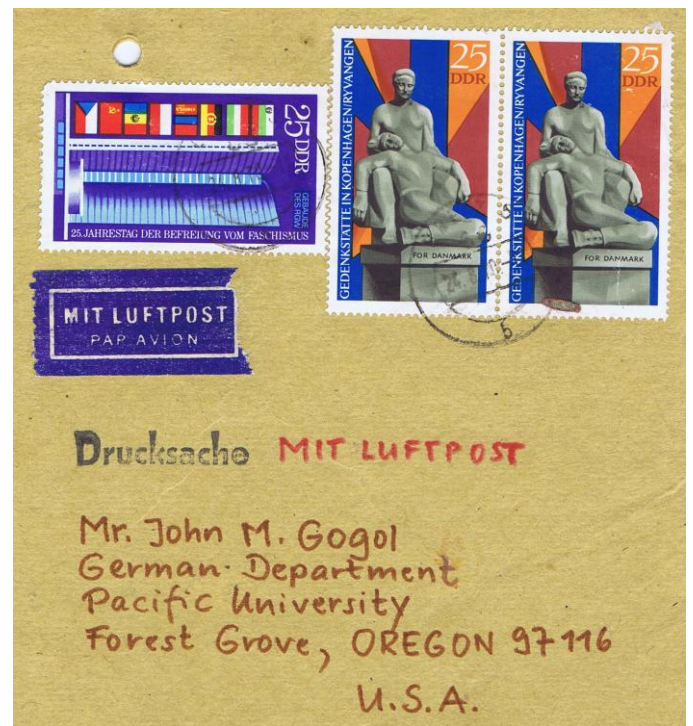 25 DDR
GEBÄUDE
DES RGW
25. JAHRESTAG DER BEFREIUNG VOM FASCHISMUS
25
DDR
GEDENKSTÄTTE IN KOPENHAGEN/RYVANGEN
FOR DANMARK
25
DDR
GEDENKSTÄTTE IN KOPENHAGEN/RYVANGEN
FOR DANMARK
MIT LUFTPOST
PAR AVION
Drucksache MIT LUFTPOST
Mr. John M. Gogol
German Department
Pacific University
Forest Grove, OREGON 97116
U.S.A.